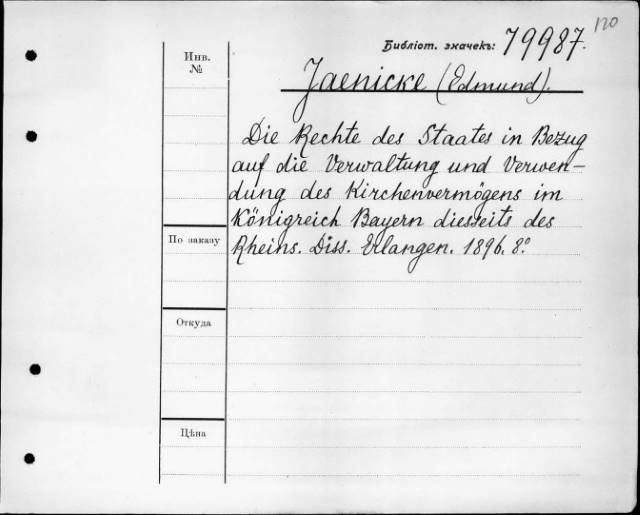 120
Библіот. значекъ: 79987.
Инв.
№
Jaenicke (Edmund).
Die Rechte des Staates in Bezug
auf die Verwaltung und Verwen-
dung des Kirchenvermögens im
Königreich Bayern diesseits des
Rheins. Diss. Erlangen. 1896. 8º
По заказу
Откуда
Цѣна